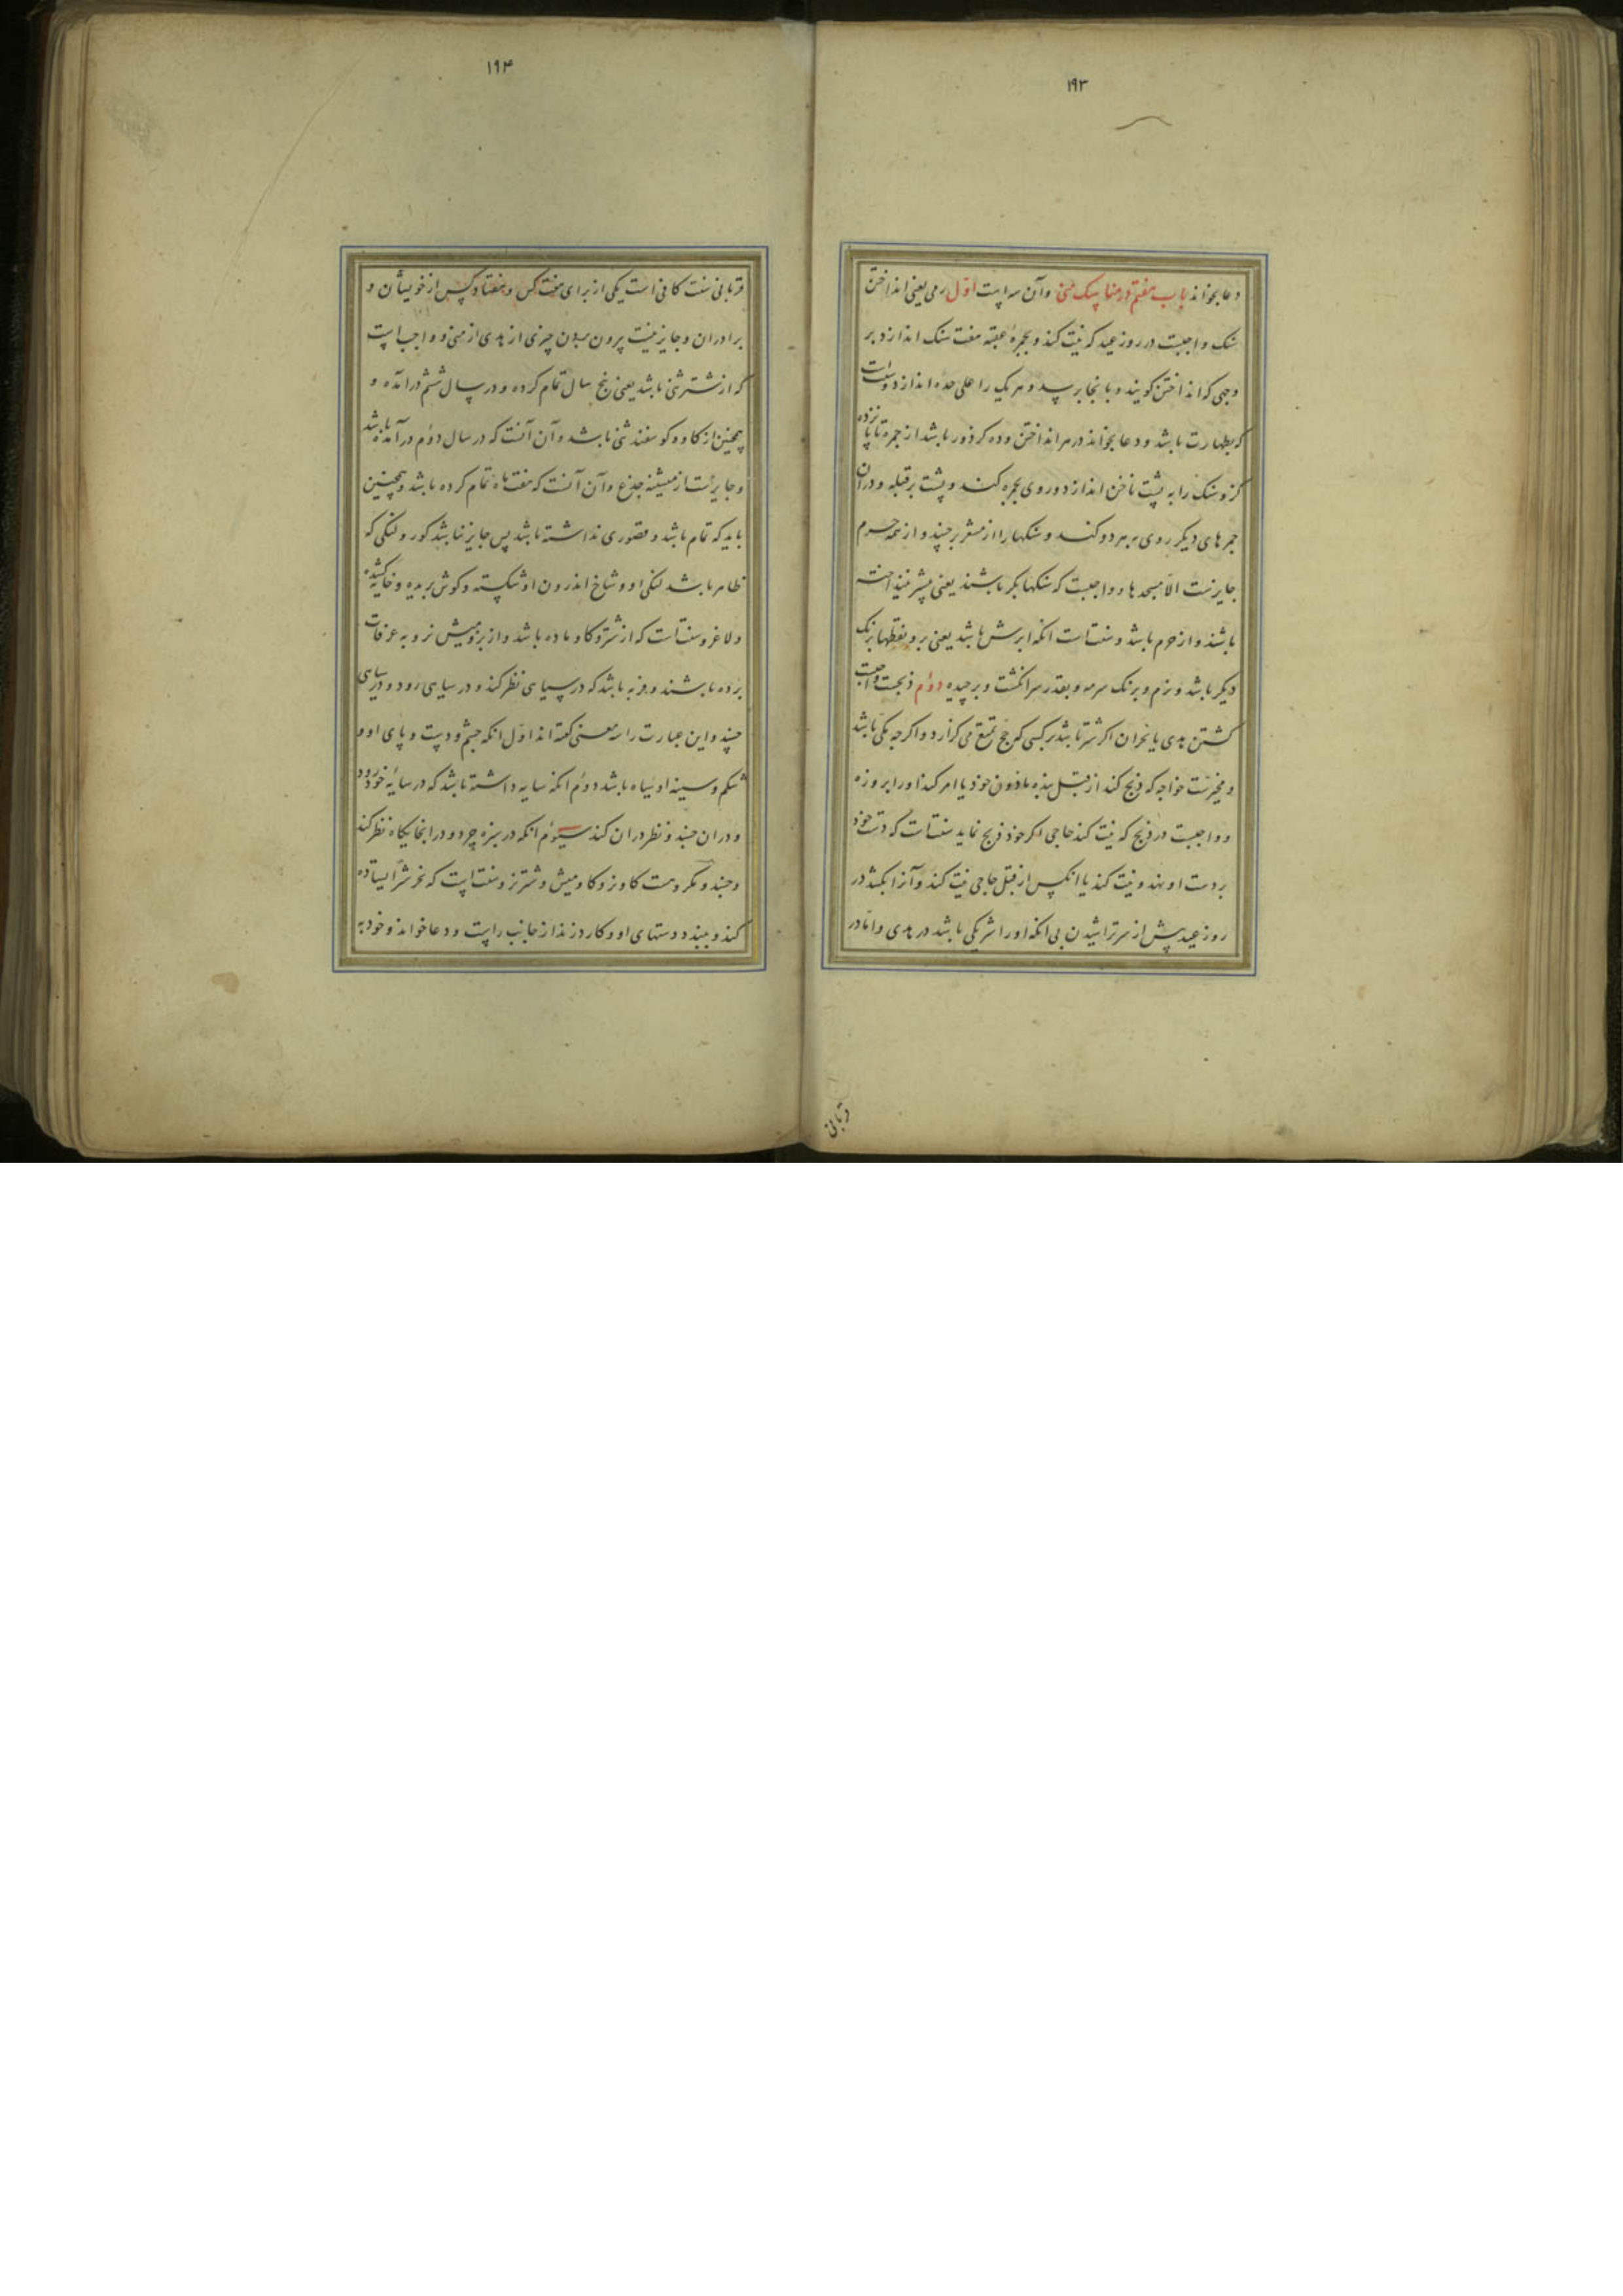 ۱۹۳
دعا بخواند باب هفتم در مناسک منی وآن سه است اول رمی یعنی انداختن
سنک واجبست در روز عید که نیت کند و بجمرهٔ عقبه هفت سنک اندازد بر
وجهی که انداختن کویند و بانجا برسد و هر یک را علی حده اندازد و سنت است
که بطهارت باشد و دعا بخواند در هر انداختن و ده کز دور باشد از جمره تا پانزده
کز و سنک را به پشت ناخن اندازد و روی بجمره کند و پشت بر قبله و در آن
جمرهای دیکر روی بهر دو کند و سنکها را از مشعر برچیند و از همه حرم
جایزست الا مسجدها و واجبست که سنکها بکر باشند یعنی پیشتر نینداخته
باشند و از حرم باشد و سنت است انکه ابرش باشد یعنی برو نقطها برنک
دیکر باشد و نرم و برنک سرمه و بقدر سر انکشت و برچیده دوم ذبحست و واجبست
کشتن هدی یا نحر ان اکر شتر باشد بر کسی که حج تمتع می کزارد و اکرچه مکی باشد
و مخیرست خواجه که ذبح کند از قبل بنده ماذون خود یا امر کند او را بروزه
و واجبست در ذبح که نیت کند حاجی اکر خود ذبح نماید سنت است که دست خود
بر دست او نهد و نیت کند یا انکس از قبل حاجی نیت کند و آنرا بکشد در
روز عید پیش از سر تراشیدن بی انکه او را شریکی باشد در هدی واما در
قربانی
۱۹۴
قربانی سنت کافی است یکی از برای هفت کس و هفتاد کس از خویشان و
برادران و جایز نیست بیرون بردن چیزی از هدی از منی و واجب است
که از شتر ثنی باشد یعنی پنج سال تمام کرده و در سال ششم درآمده و
همچنین از کاو و کوسفند ثنی باشد و آن آنست که در سال دوم درآمده باشد
و جایزست از میشینه جذع وآن آنست که هفت ماه تمام کرده باشد و همچنین
باید که تمام باشد و قصوری نداشته باشد پس جایز نباشد کور و لنکی که
ظاهر باشد لنکی او و شاخ اندرون او شکسته و کوش بریده و خایه کشیده
و لاغر و سنت است که از شتر و کاو ماده باشد و از بز و میش نر و به عرفات
برده باشند و فربه باشد که در سیاهی نظر کند و در سیاهی رود و در سیاهی
خسپد و این عبارت را سه معنی کفته اند اول انکه چشم و دست و پای او و
شکم و سینه او سیاه باشد دوم انکه سایه داشته باشد که در سایهٔ خود رود
و در ان خسپد و نظر در ان کند سیوم انکه در سبزه چرد و در انجایکاه نظر کند
و خسپد و مکروهست کاو نر و کاومیش و شتر نر و سنت است که نحر شتر ایستاده
کند و ببندد دستهای او و کارد زند از جانب راست و دعا خواند و خود به